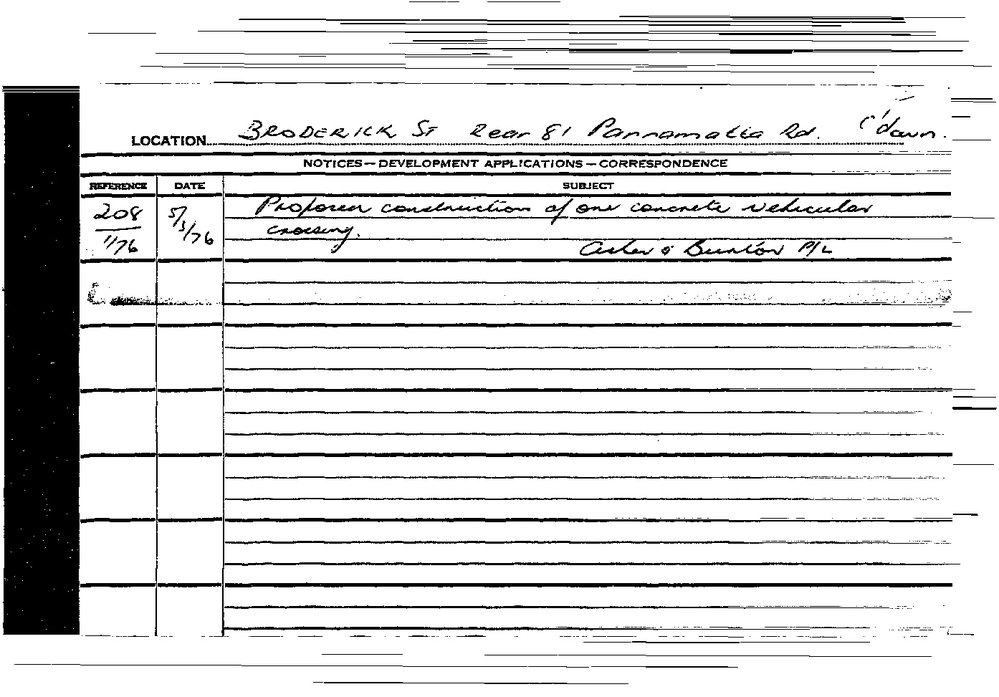 LOCATION BRODERICK ST Rear 81 Parramatta Rd. C'down.
NOTICES — DEVELOPMENT APPLICATIONS — CORRESPONDENCE
REFERENCE DATE SUBJECT
208 5/3/76 Proposed construction of one concrete vehicular
1/76 crossing.
& Bunton P/L